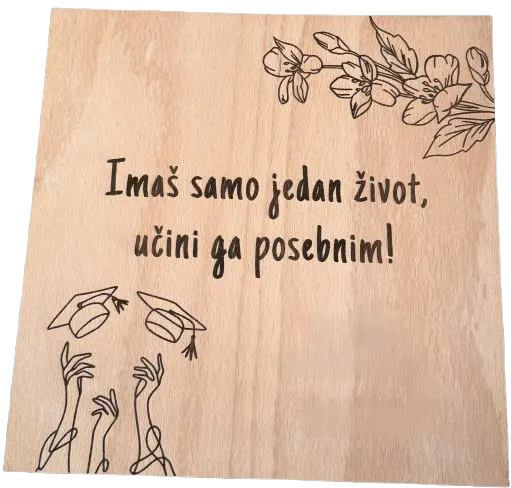 Imaš samo jedan život,
učini ga posebnim!